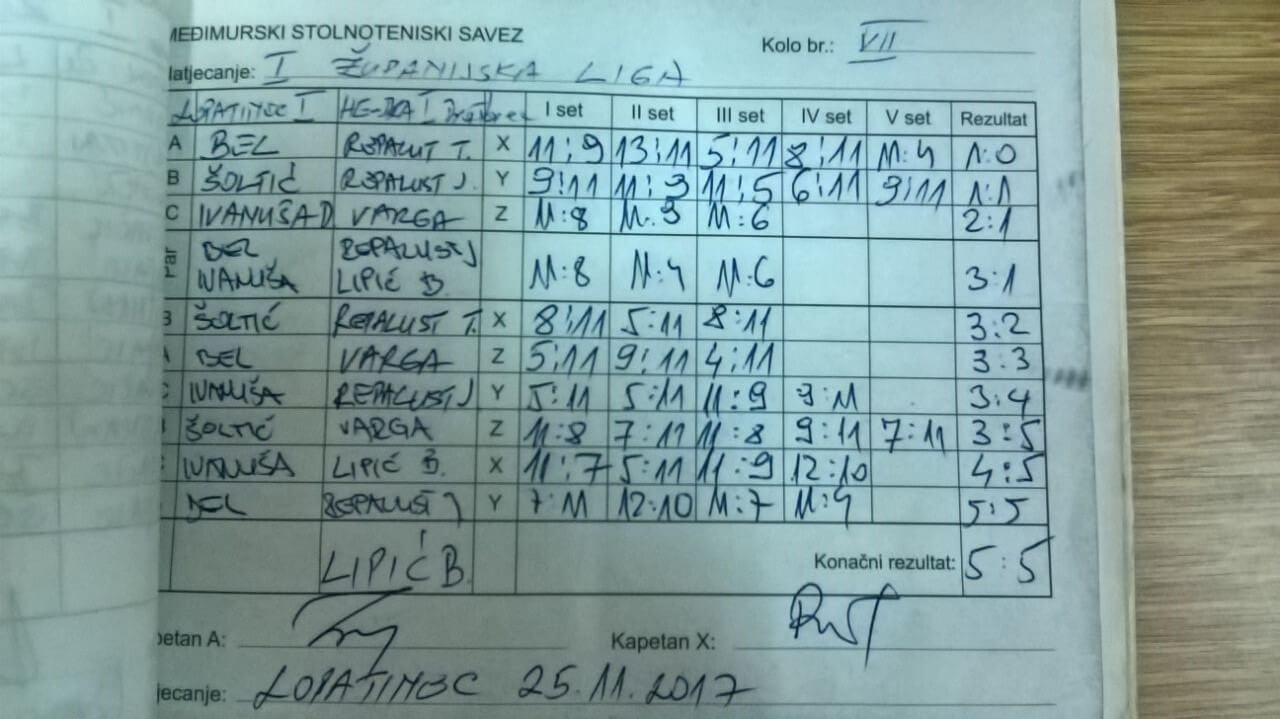 MEĐIMURSKI STOLNOTENISKI SAVEZ
Kolo br.: VII
atjecanje: I ŽUPANIJSKA LIGA
LOPATINEC I HE-DRA I I set II set III set IV set V set Rezultat
A BEL REPALUT T. X 11:9 13:11 5:11 8:11 11:4 1:0
B ŠOLTIĆ REPALUST J. Y 9:11 11:3 11:5 6:11 9:11 1:1
C IVANUŠA D VARGA Z 11:8 11:9 11:6 2:1
BEL REPALUST J
IVANUŠA LIPIĆ B. 11:8 11:4 11:6 3:1
B ŠOLTIĆ REPALUST T. X 8:11 5:11 8:11 3:2
BEL VARGA Z 5:11 9:11 4:11 3:3
IVANUŠA REPALUST J Y 5:11 5:11 11:9 9:11 3:4
ŠOLTIĆ VARGA Z 11:8 7:11 11:8 9:11 7:11 3:5
IVANUŠA LIPIĆ B. X 11:7 5:11 11:9 12:10 4:5
BEL REPALUST J Y 7:11 12:10 11:7 11:9 5:5
LIPIĆ B. Konačni rezultat: 5:5
petan A: Kapetan X:
jecanje: LOPATINEC 25.11.2017